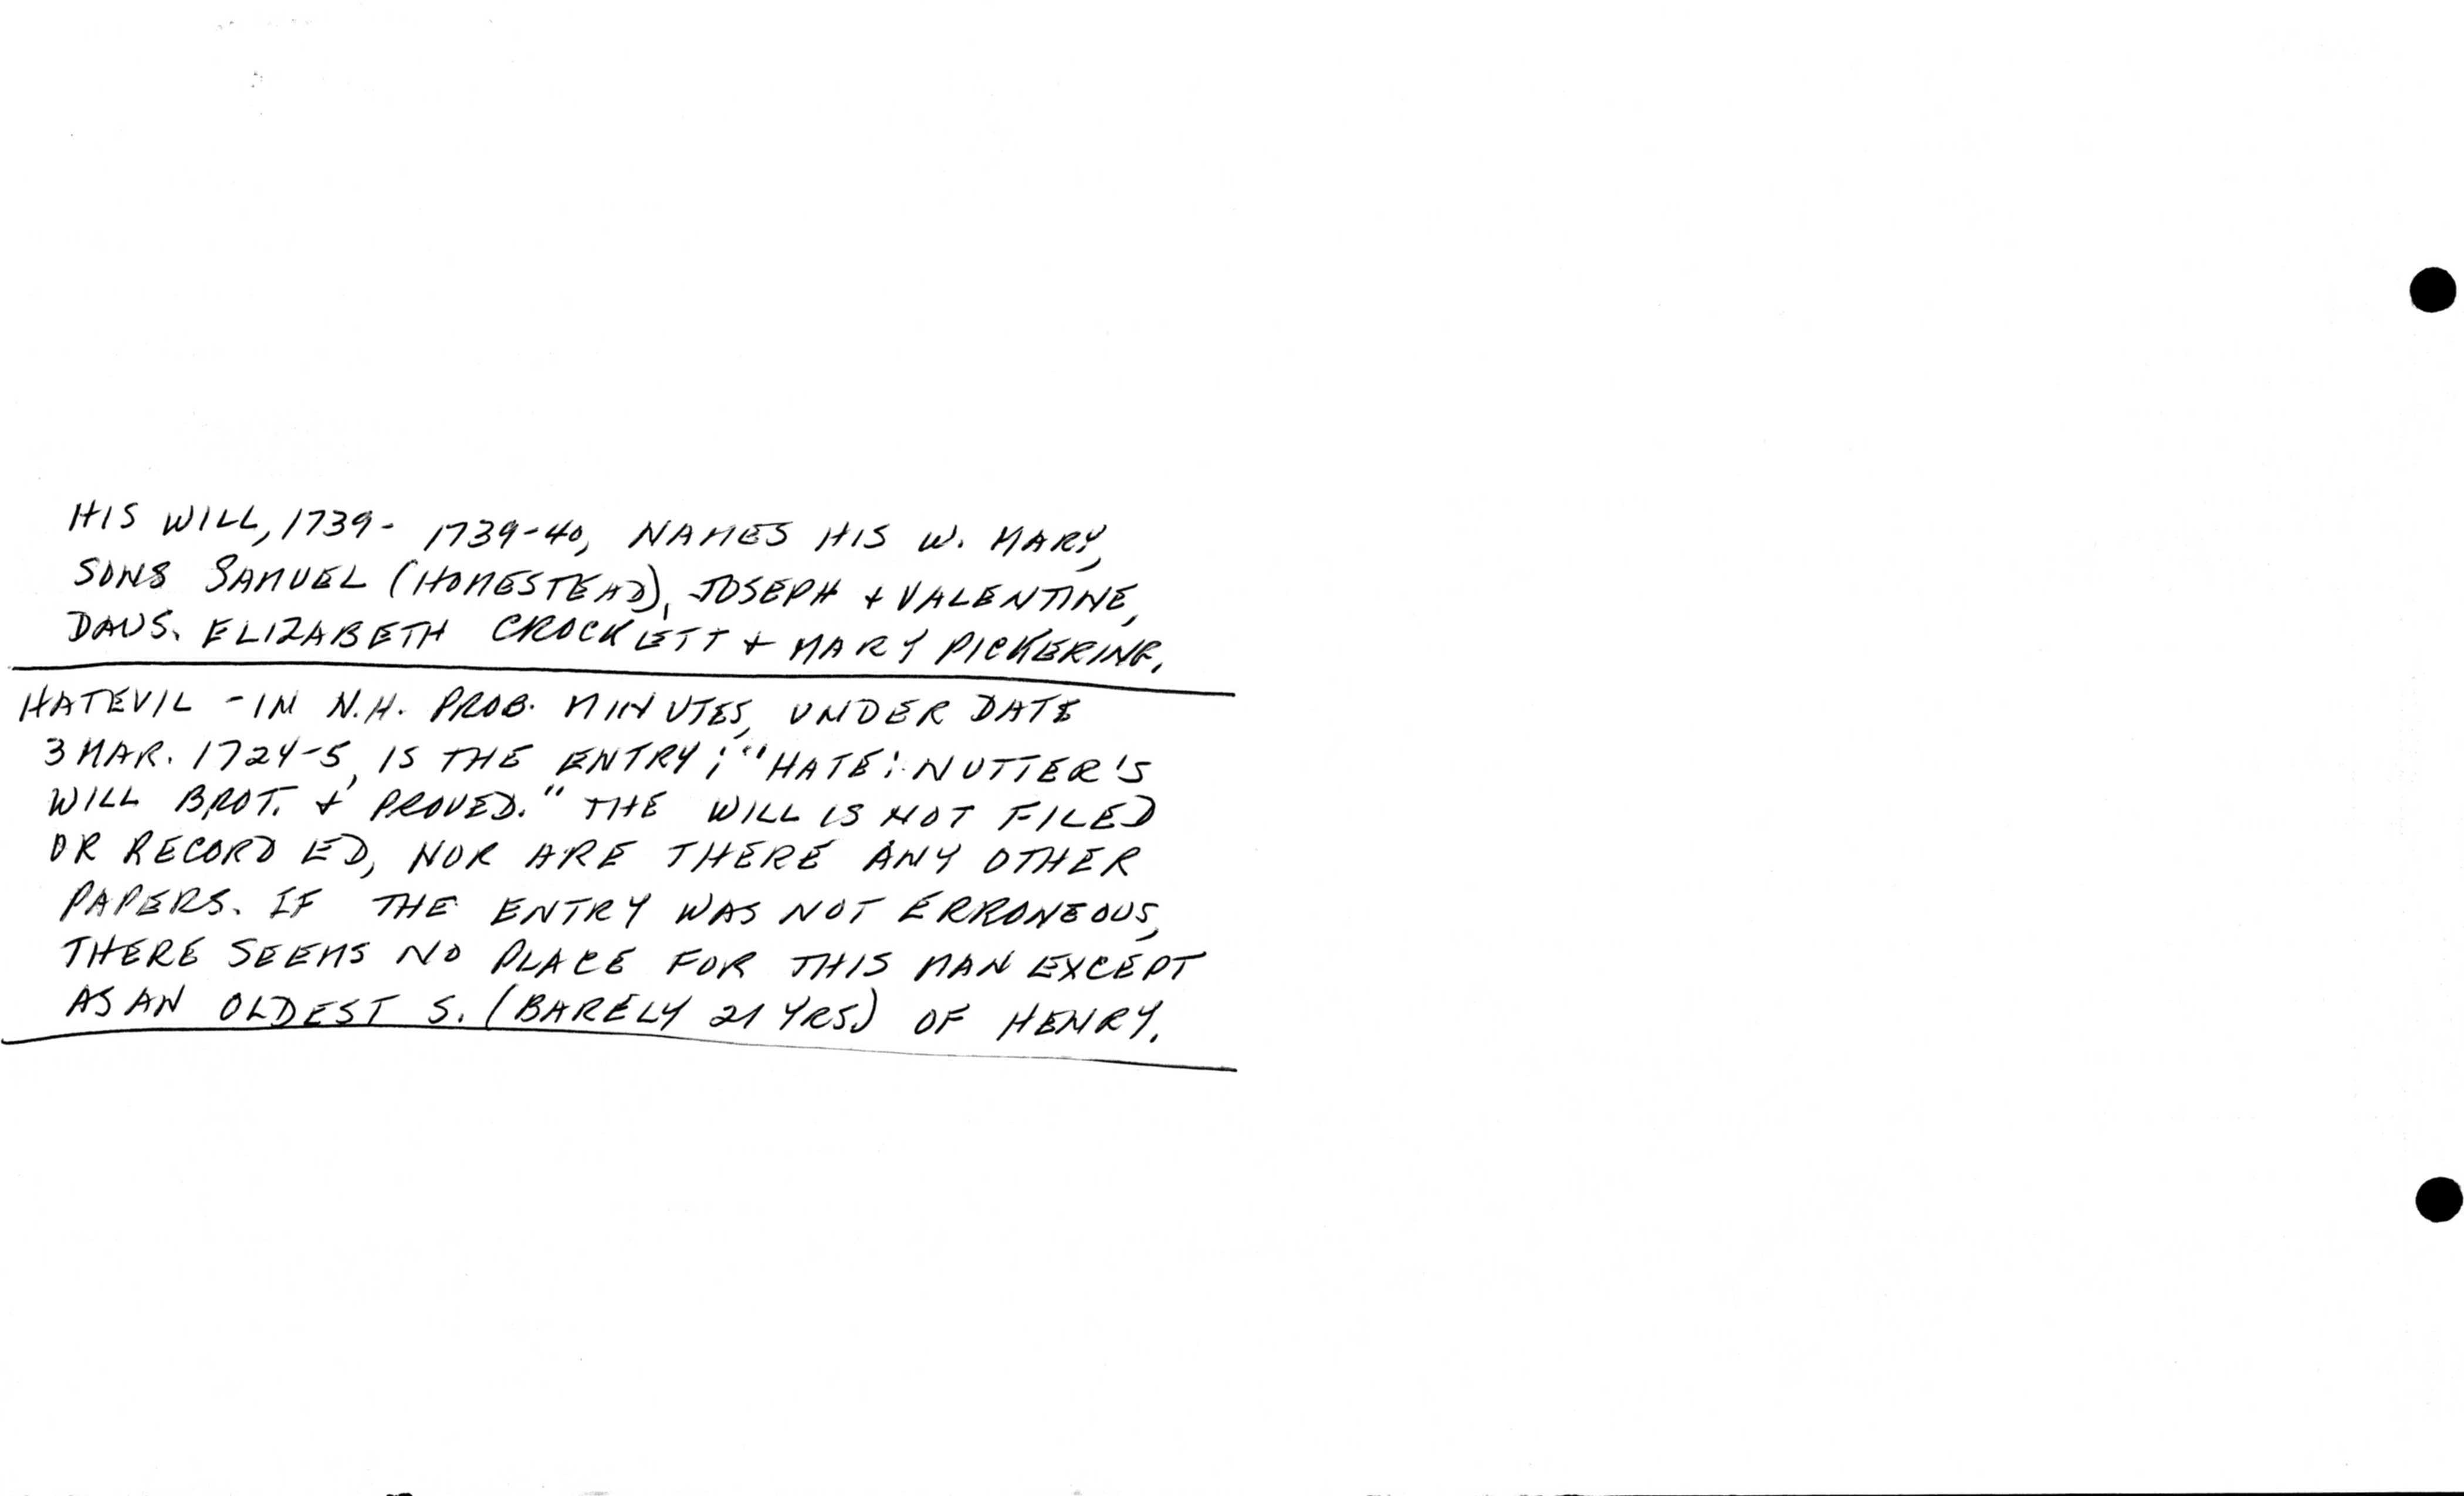 HIS WILL, 1739- 1739-40, NAMES HIS W. MARY,
SONS SAMUEL (HOMESTEAD), JOSEPH + VALENTINE,
DAUS. ELIZABETH CROCKETT + MARY PICKERING.
HATEVIL - IN N.H. PROB. MINUTES, UNDER DATE
3 MAR. 1724-5, IS THE ENTRY: "HATE: NUTTER'S
WILL BROT. + PROVED." THE WILL IS NOT FILED
OR RECORDED, NOR ARE THERE ANY OTHER
PAPERS. IF THE ENTRY WAS NOT ERRONEOUS,
THERE SEEMS NO PLACE FOR THIS MAN EXCEPT
AS AN OLDEST S. (BARELY 21 YRS.) OF HENRY.